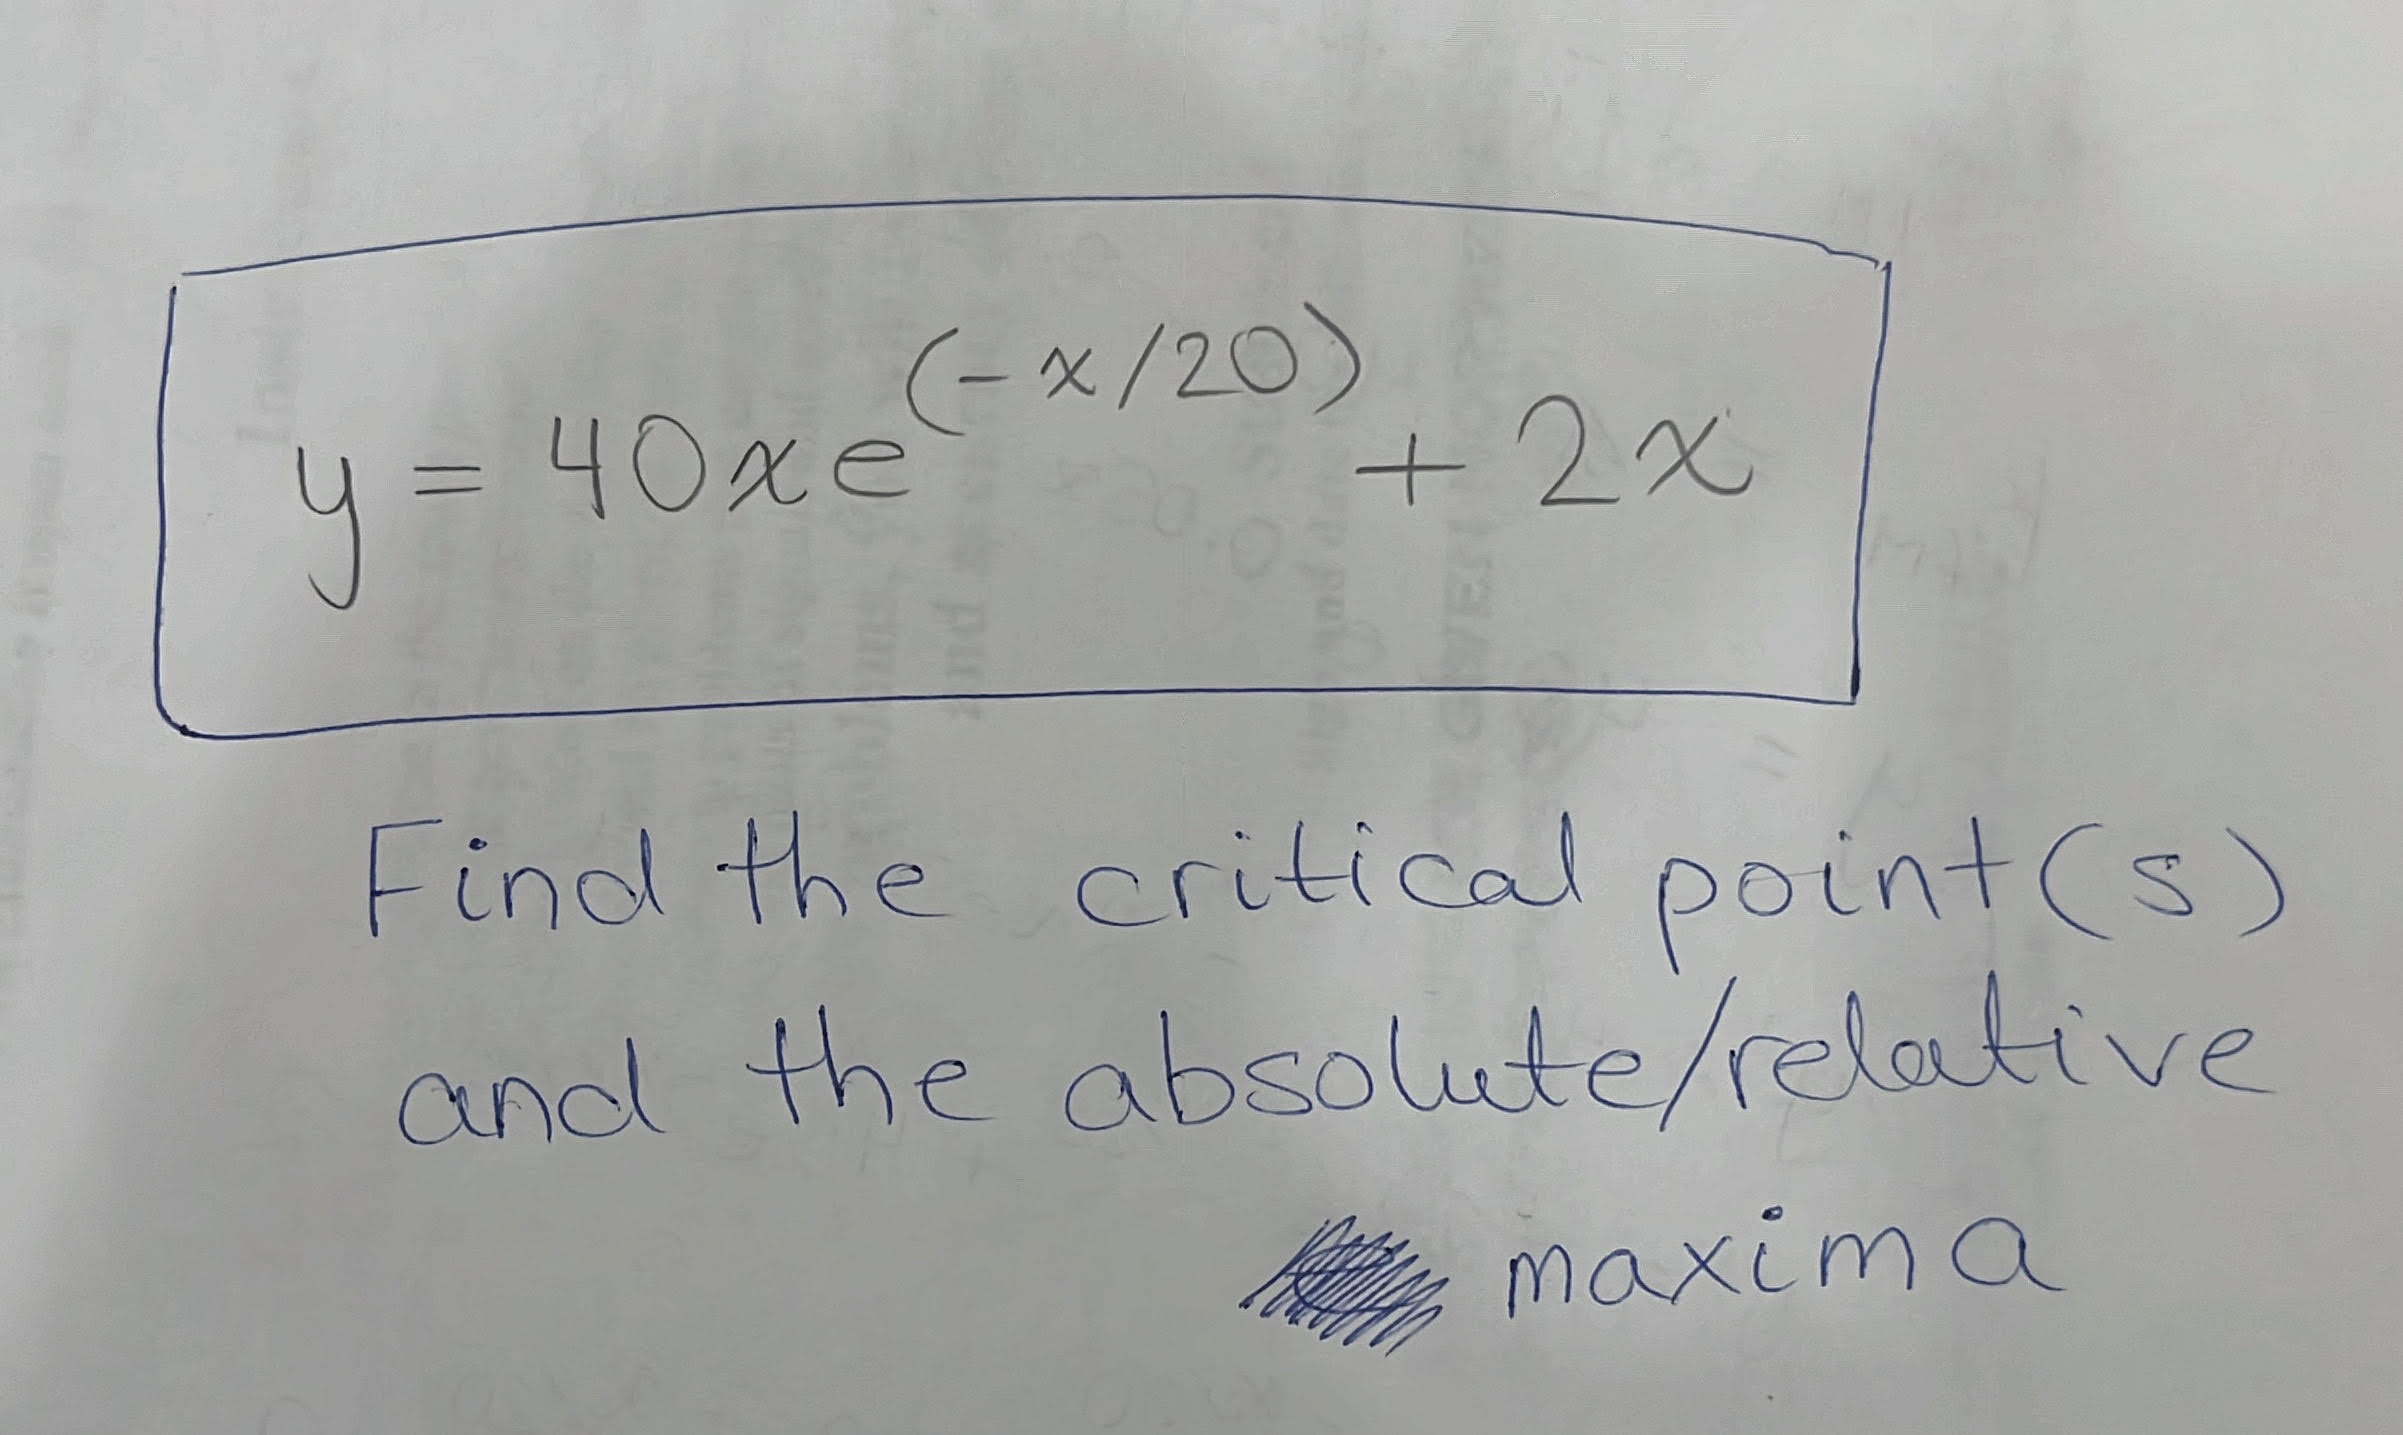 y = 40xe^(-x/20) + 2x
Find the critical point(s)
and the absolute/relative
maxima